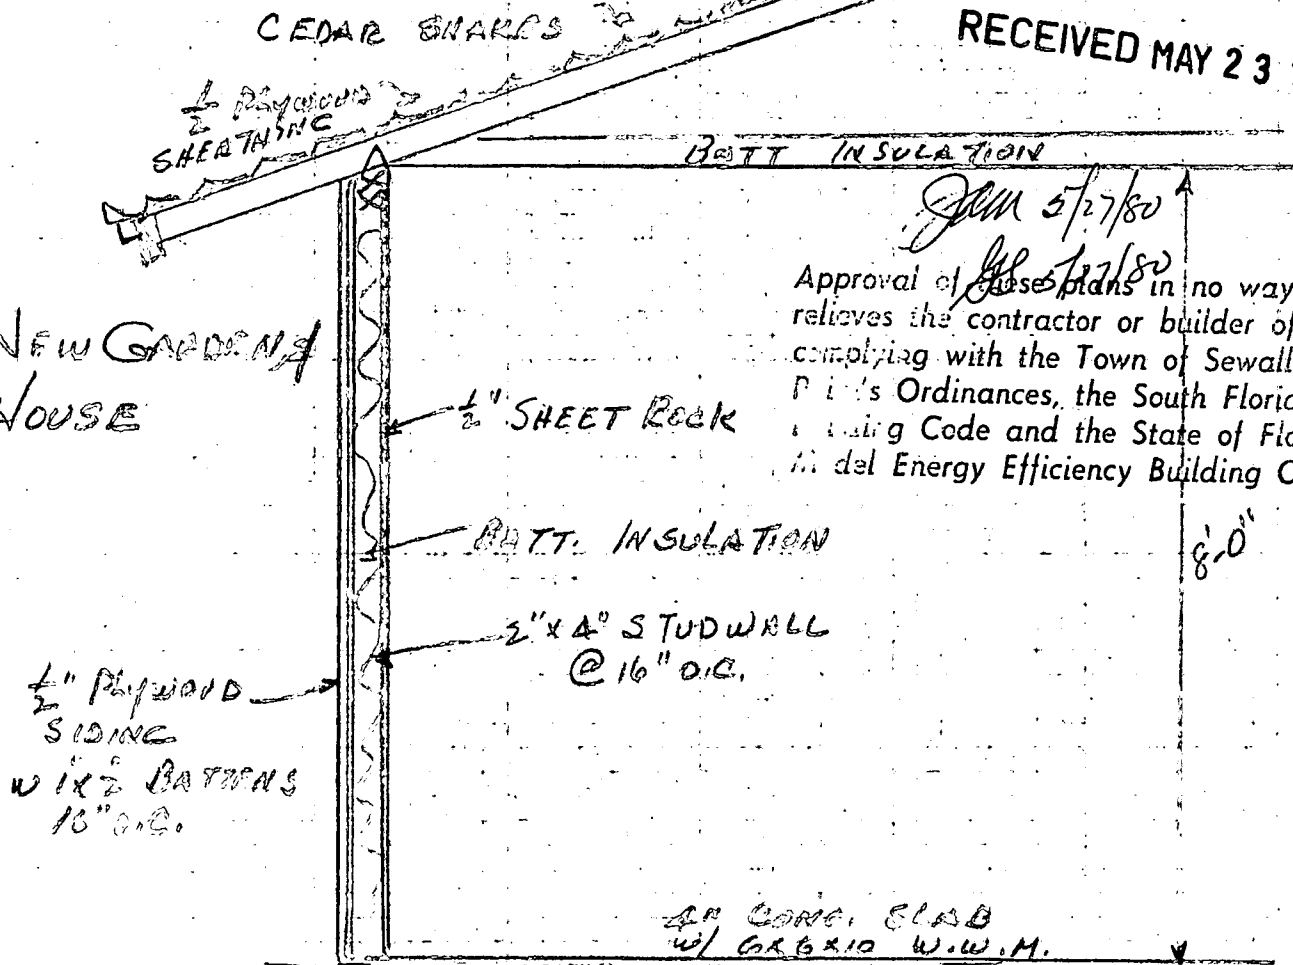 CEDAR SHAKES
RECEIVED MAY 23
1/2 PLYWOOD
SHEATHING
BATT INSULATION
5/27/80
5/27/80
Approval of these plans in no way
relieves the contractor or builder of
complying with the Town of Sewall
P i 's Ordinances, the South Floric
g Code and the State of Flo
M del Energy Efficiency Building C
NEW GARDENS
HOUSE
1/2" SHEET ROCK
BATT. INSULATION
8'-0"
2" x 4" STUDWALL
@ 16" O.C.
1/2" PLYWOOD
SIDING
W 1x2 BATTENS
16" O.C.
4" CONC. SLAB
W/ 6X6X10 W.W.M.